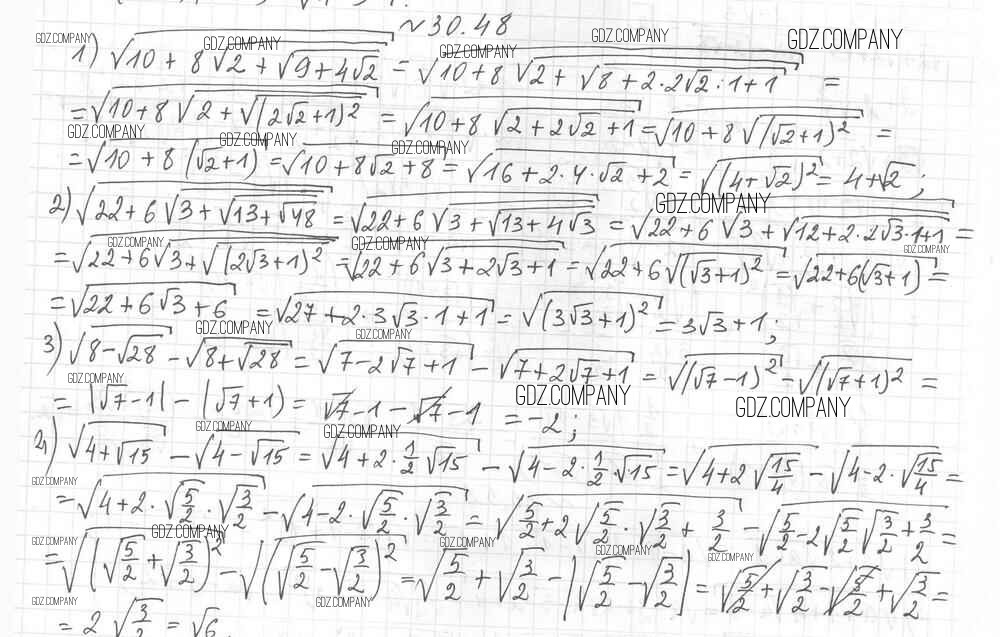 ~30.48
1) √(10+8√(2+√(9+4√2))) = √(10+8√(2+√(8+2·2√2·1+1))) =
= √(10+8√(2+√((2√2+1)²))) = √(10+8√(2+2√2+1)) = √(10+8√((√2+1)²)) =
= √(10+8(√2+1)) = √(10+8√2+8) = √(16+2·4·√2+2) = √((4+√2)²) = 4+√2;
2) √(22+6√(3+√(13+√48))) = √(22+6√(3+√(13+4√3))) = √(22+6√(3+√(12+2·2√3·1+1))) =
= √(22+6√(3+√((2√3+1)²))) = √(22+6√(3+2√3+1)) = √(22+6√((√3+1)²)) = √(22+6(√3+1)) =
= √(22+6√3+6) = √(27+2·3√3·1+1) = √((3√3+1)²) = 3√3+1;
3) √(8-√28) - √(8+√28) = √(7-2√7+1) - √(7+2√7+1) = √((√7-1)²) - √((√7+1)²) =
= |√7-1| - (√7+1) = √7-1-√7-1 = -2;
4) √(4+√15) - √(4-√15) = √(4+2·1/2√15) - √(4-2·1/2·√15) = √(4+2√(15/4)) - √(4-2·√(15/4)) =
= √(4+2·√(5/2)·√(3/2)) - √(4-2·√(5/2)·√(3/2)) = √(5/2+2√(5/2)·√(3/2)+3/2) - √(5/2-2√(5/2)√(3/2)+3/2) =
= √((√(5/2)+√(3/2))²) - √((√(5/2)-√(3/2))²) = √(5/2)+√(3/2)-|√(5/2)-√(3/2)| = √(5/2)+√(3/2)-√(5/2)+√(3/2) =
= 2√(3/2) = √6.
GDZ.COMPANY